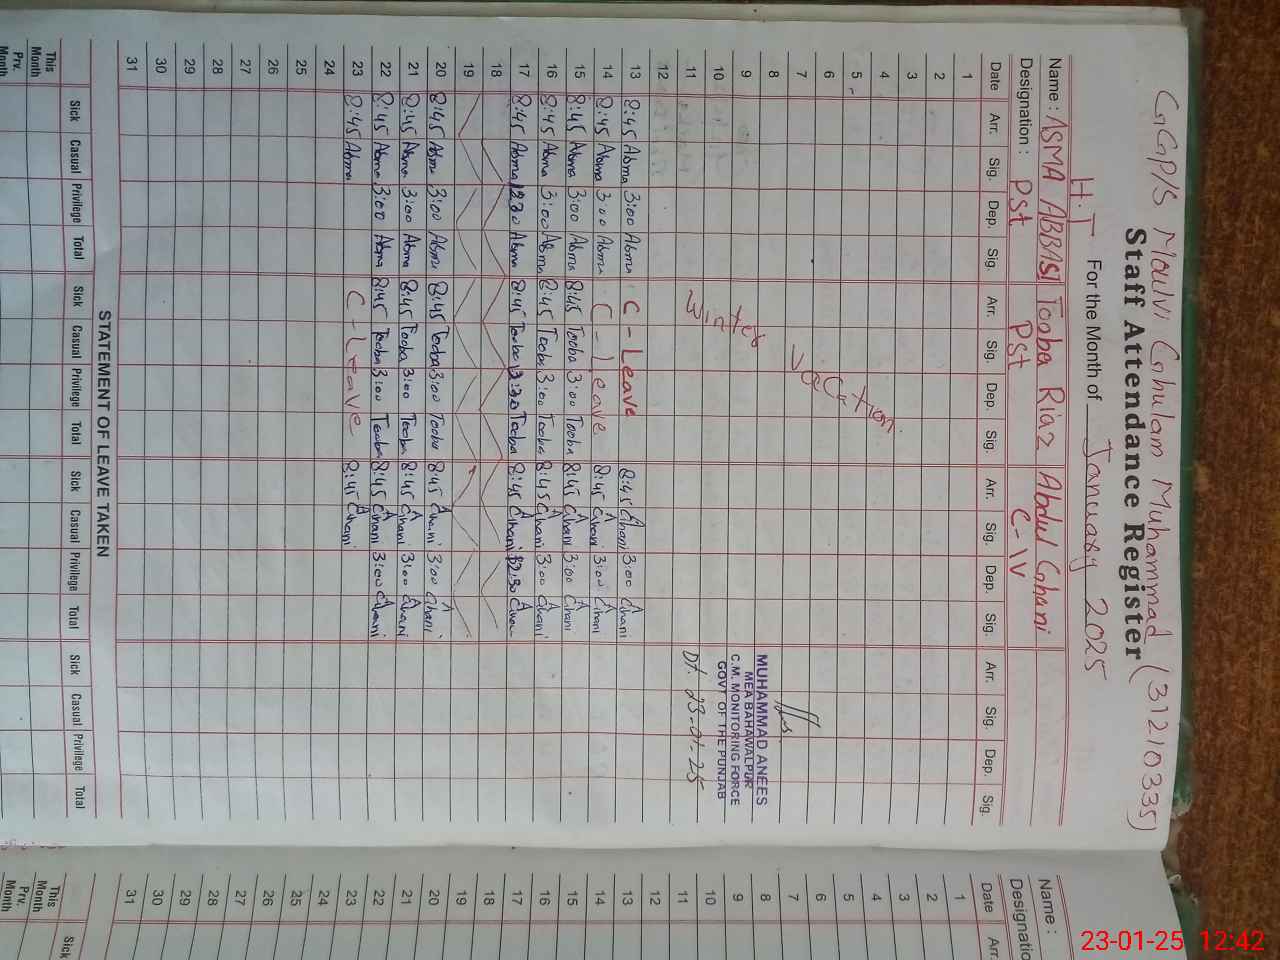 GGP/S Moulvi Ghulam Muhammad (31210335)
Staff Attendance Register
H.T For the Month of January 2025
Name : ASMA ABBASI Tooba Riaz Abdul Ghani
Designation : PSt PSt C-IV
Date Arr. Sig. Dep. Sig. Arr. Sig. Dep. Sig. Arr. Sig. Dep. Sig. Arr. Sig. Dep. Sig.
1
2
3
4
5
6
7
8
9
10
11
12
Winter Vacation
MUHAMMAD ANEES
MEA BAHAWALPUR
C.M. MONITORING FORCE
GOVT OF THE PUNJAB
Dt. 23-01-25
13 8:45 Asma 3:00 Asma C-Leave 8:45 A Ghani 3:00 A Ghani
14 8:45 Asma 3:00 Asma C-Leave 8:45 A Ghani 3:00 A Ghani
15 8:45 Asma 3:00 Asma 8:45 Tooba 3:00 Tooba 8:45 A Ghani 3:00 A Ghani
16 8:45 Asma 3:00 Asma 8:45 Tooba 3:00 Tooba 8:45 A Ghani 3:00 A Ghani
17 8:45 Asma Asma 8:45 Tooba Tooba 8:45 A Ghani 12:30 A Ghani
18
19
20 8:45 Asma 3:00 Asma 8:45 Tooba 3:00 Tooba 8:45 A Ghani 3:00 A Ghani
21 8:45 Asma 3:00 Asma 8:45 Tooba 3:00 Tooba 8:45 A Ghani 3:00 A Ghani
22 8:45 Asma 3:00 Asma 8:45 Tooba 3:00 Tooba 8:45 A Ghani 3:00 A Ghani
23 8:45 Asma C-Leave 8:45 A Ghani
24
25
26
27
28
29
30
31
STATEMENT OF LEAVE TAKEN
Sick Casual Privilege Total Sick Casual Privilege Total Sick Casual Privilege Total Sick Casual Privilege Total
This Month
Prv. Month
Name :
Designatio
Date Arr.
1
2
3
4
5
6
7
8
9
10
11
12
13
14
15
16
17
18
19
20
21
22
23
24
25
26
27
28
29
30
31
Sick
This Month
Prv. Month
23-01-25 12:42